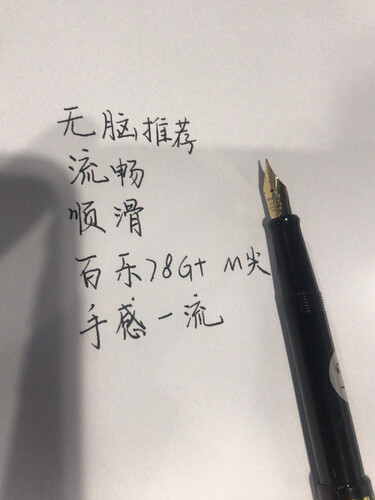 无脑推荐
流畅
顺滑
百乐78G+ M尖
手感一流